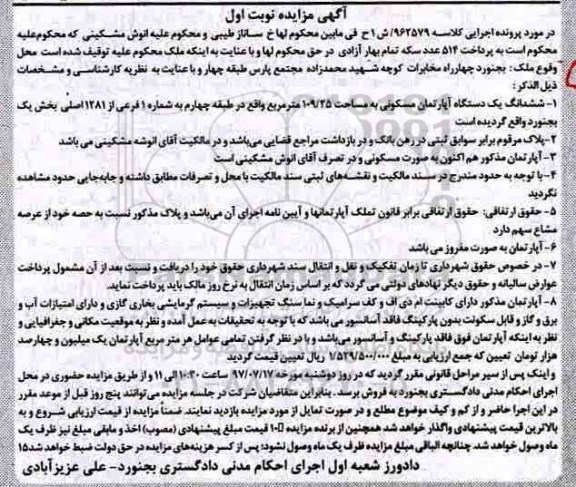 آگهی مزایده نوبت اول
در مورد پرونده اجرایی کلاسه ۹۶۲۵۷۹/ش ۱ح فی مابین محکوم لها خ ساناز طیبی و محکوم علیه انوش مشکینی که محکوم علیه
محکوم است به پرداخت ۵۱۴ عدد سکه تمام بهار آزادی در حق محکوم لها و با عنایت به اینکه ملک محکوم علیه توقیف شده است محل
وقوع ملک: بجنورد چهارراه مخابرات کوچه شهید محمدزاده مجتمع پارس طبقه چهار و با عنایت به نظریه کارشناسی و مشخصات
ذیل الذکر:
۱- ششدانگ یک دستگاه آپارتمان مسکونی به مساحت ۱۰۹/۲۵ مترمربع واقع در طبقه چهارم به شماره ۱ فرعی از ۱۲۸۱ اصلی بخش یک
بجنورد واقع گردیده است
۲-پلاک مرقوم برابر سوابق ثبتی در رهن بانک و در بازداشت مراجع قضایی می‌باشد و در مالکیت آقای انوشه مشکینی می باشد
۳- آپارتمان مذکور هم اکنون به صورت مسکونی و در تصرف آقای انوش مشکینی است
۴- با توجه به حدود مندرج در سند مالکیت و نقشه‌های ثبتی سند مالکیت با محل و تصرفات مطابق داشته و جابه‌جایی حدود مشاهده
نگردید
۵- حقوق ارتفاقی: حقوق ارتفاقی برابر قانون تملک آپارتمانها و آیین نامه اجرای آن می‌باشد و پلاک مذکور نسبت به حصه خود از عرصه
مشاع سهم دارد
۶- آپارتمان به صورت مفروز می باشد
۷- در خصوص حقوق شهرداری تا زمان تفکیک و نقل و انتقال سند شهرداری حقوق خود را دریافت و نسبت بعد از آن مشمول پرداخت
عوارض سالیانه و حقوق دیگر نهادهای دولتی می گردد که بر اساس زمان انتقال به نرخ روز مالک باید پرداخت نماید.
۸- آپارتمان مذکور دارای کابینت ام دی اف و کف سرامیک و نما سنگ تجهیزات و سیستم گرمایشی بخاری گازی و دارای امتیازات آب و
برق و گاز و قابل سکونت بدون پارکینگ فاقد آسانسور می باشد که با توجه به تحقیقات به عمل آمده و نظر به موقعیت مکانی و جغرافیایی و
نظر به اینکه آپارتمان فوق فاقد پارکینگ و آسانسور می‌باشد و با در نظر گرفتن تمامی عوامل هر متر مربع آپارتمان یک میلیون و چهارصد
هزار تومان تعیین که جمع ارزیابی به مبلغ ۱/۵۲۹/۵۰۰/۰۰۰ ریال تعیین قیمت گردید
و اینک پس از سیر مراحل قانونی مقرر گردید که در روز دوشنبه مورخه ۹۷/۰۷/۱۷ ساعت ۱۰:۳۰ الی ۱۱ و از طریق مزایده حضوری در محل
اجرای احکام مدنی دادگستری بجنورد به فروش برسد. بنابراین متقاضیان شرکت در جلسه مزایده می‌توانند پنج روز قبل از موعد مقرر
در این اجرا حاضر و از کم و کیف موضوع مطلع و در صورت تمایل از مورد مزایده بازدید نمایند. ضمناً مزایده از قیمت ارزیابی شروع و به
بالاترین قیمت پیشنهادی واگذار خواهد شد همچنین از برنده مزایده ۱۰٪ قیمت مبلغ پیشنهادی (مصوب) اخذ و مابقی مبلغ نیز ظرف یک ماه
وصول خواهد شد. چنانچه الباقی مبلغ مزایده ظرف یک ماه وصول نشود؛ پس از کسر هزینه‌های مزایده در حق دولت ضبط خواهد شد۱۵
دادورز شعبه اول اجرای احکام مدنی دادگستری بجنورد- علی عزیزآبادی